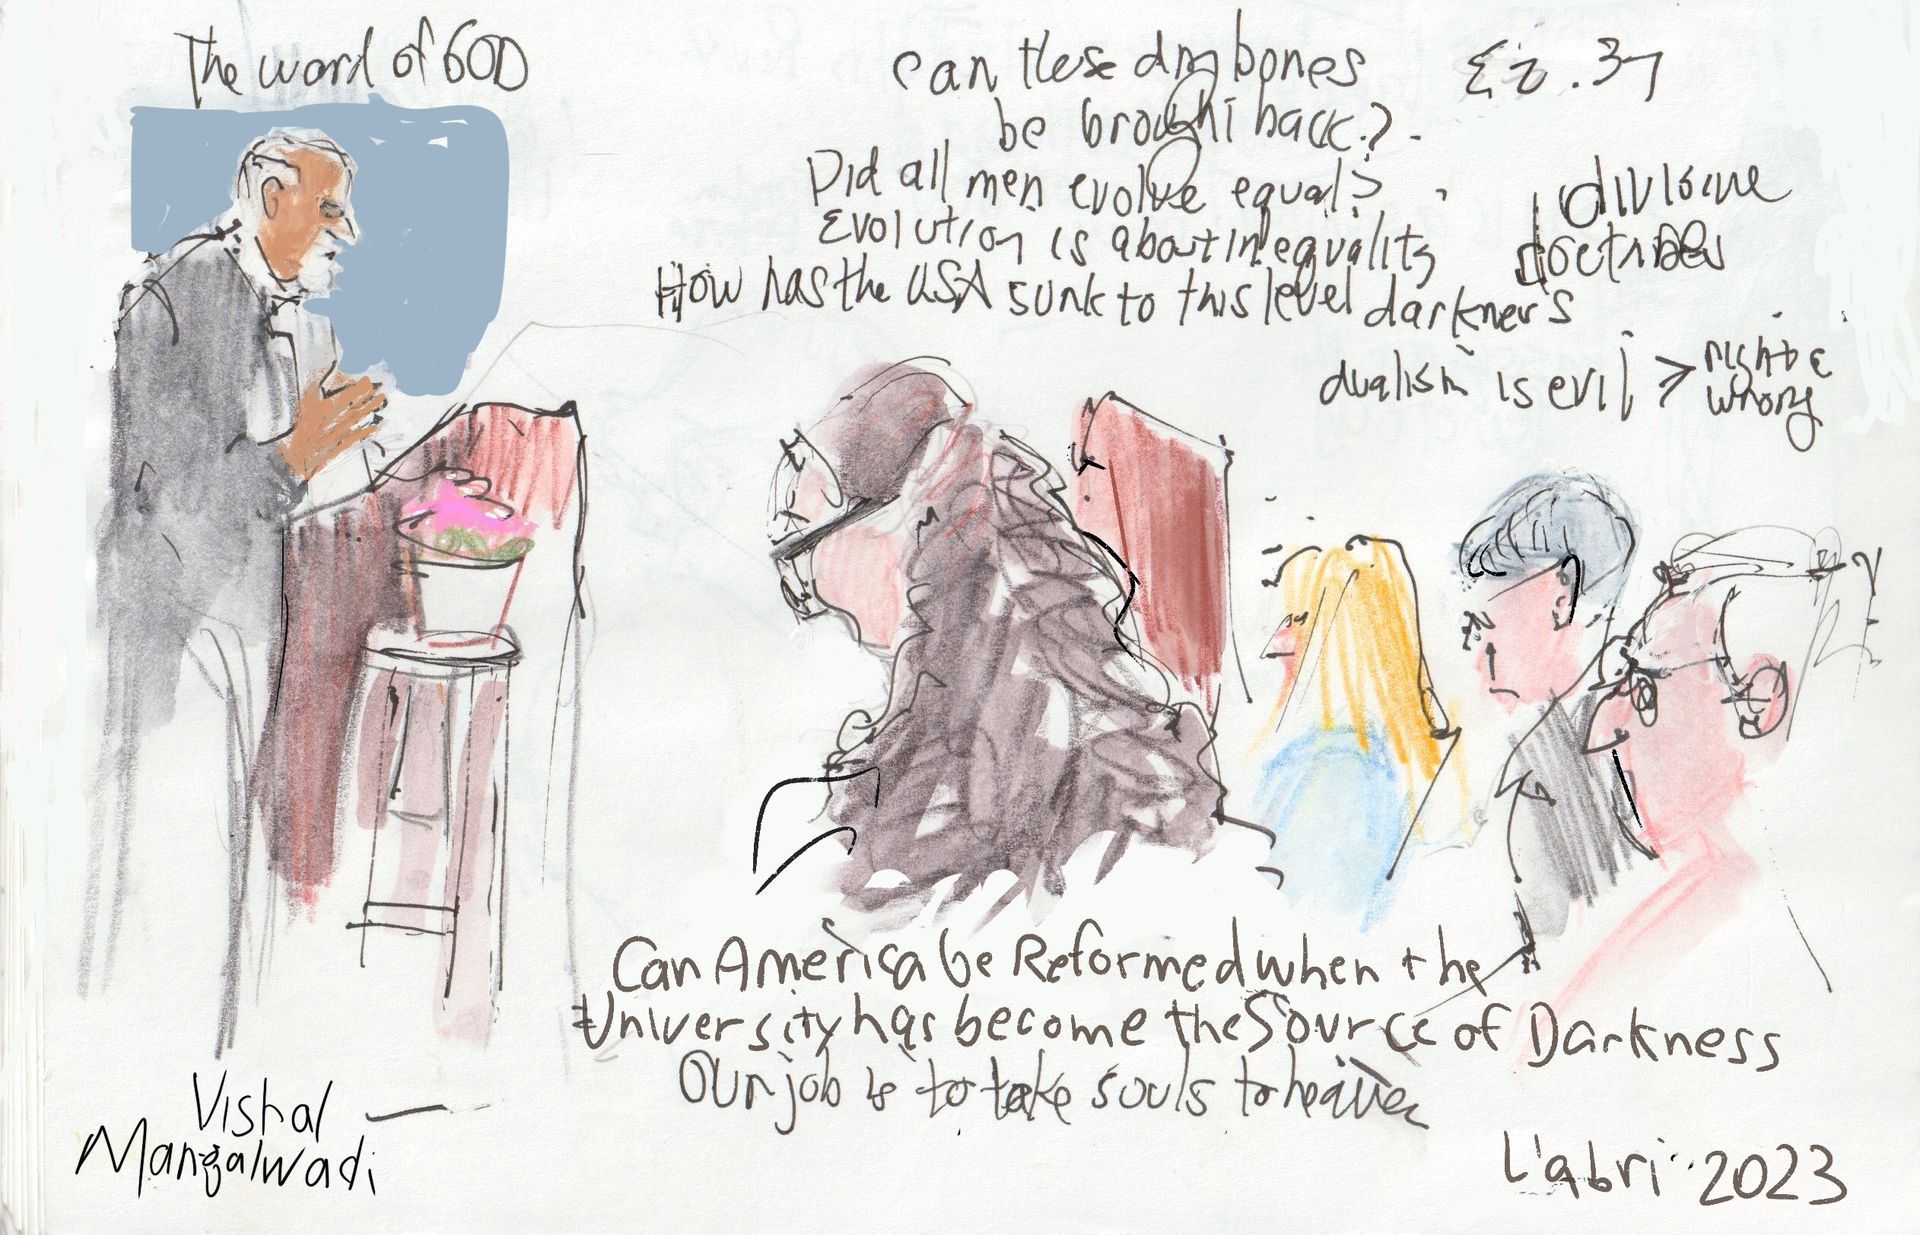 The word of GOD
Can these dry bones
be brought back?
Ez. 37
Did all men evolve equal?
Evolution is about inequality
divisive
doctrines
How has the USA sunk to this level darkness
dualism is evil > right &
wrong
Can America be Reformed when the
University has become the Source of Darkness
Our job is to take souls to heaven
Vishal
Mangalwadi
L'abri 2023